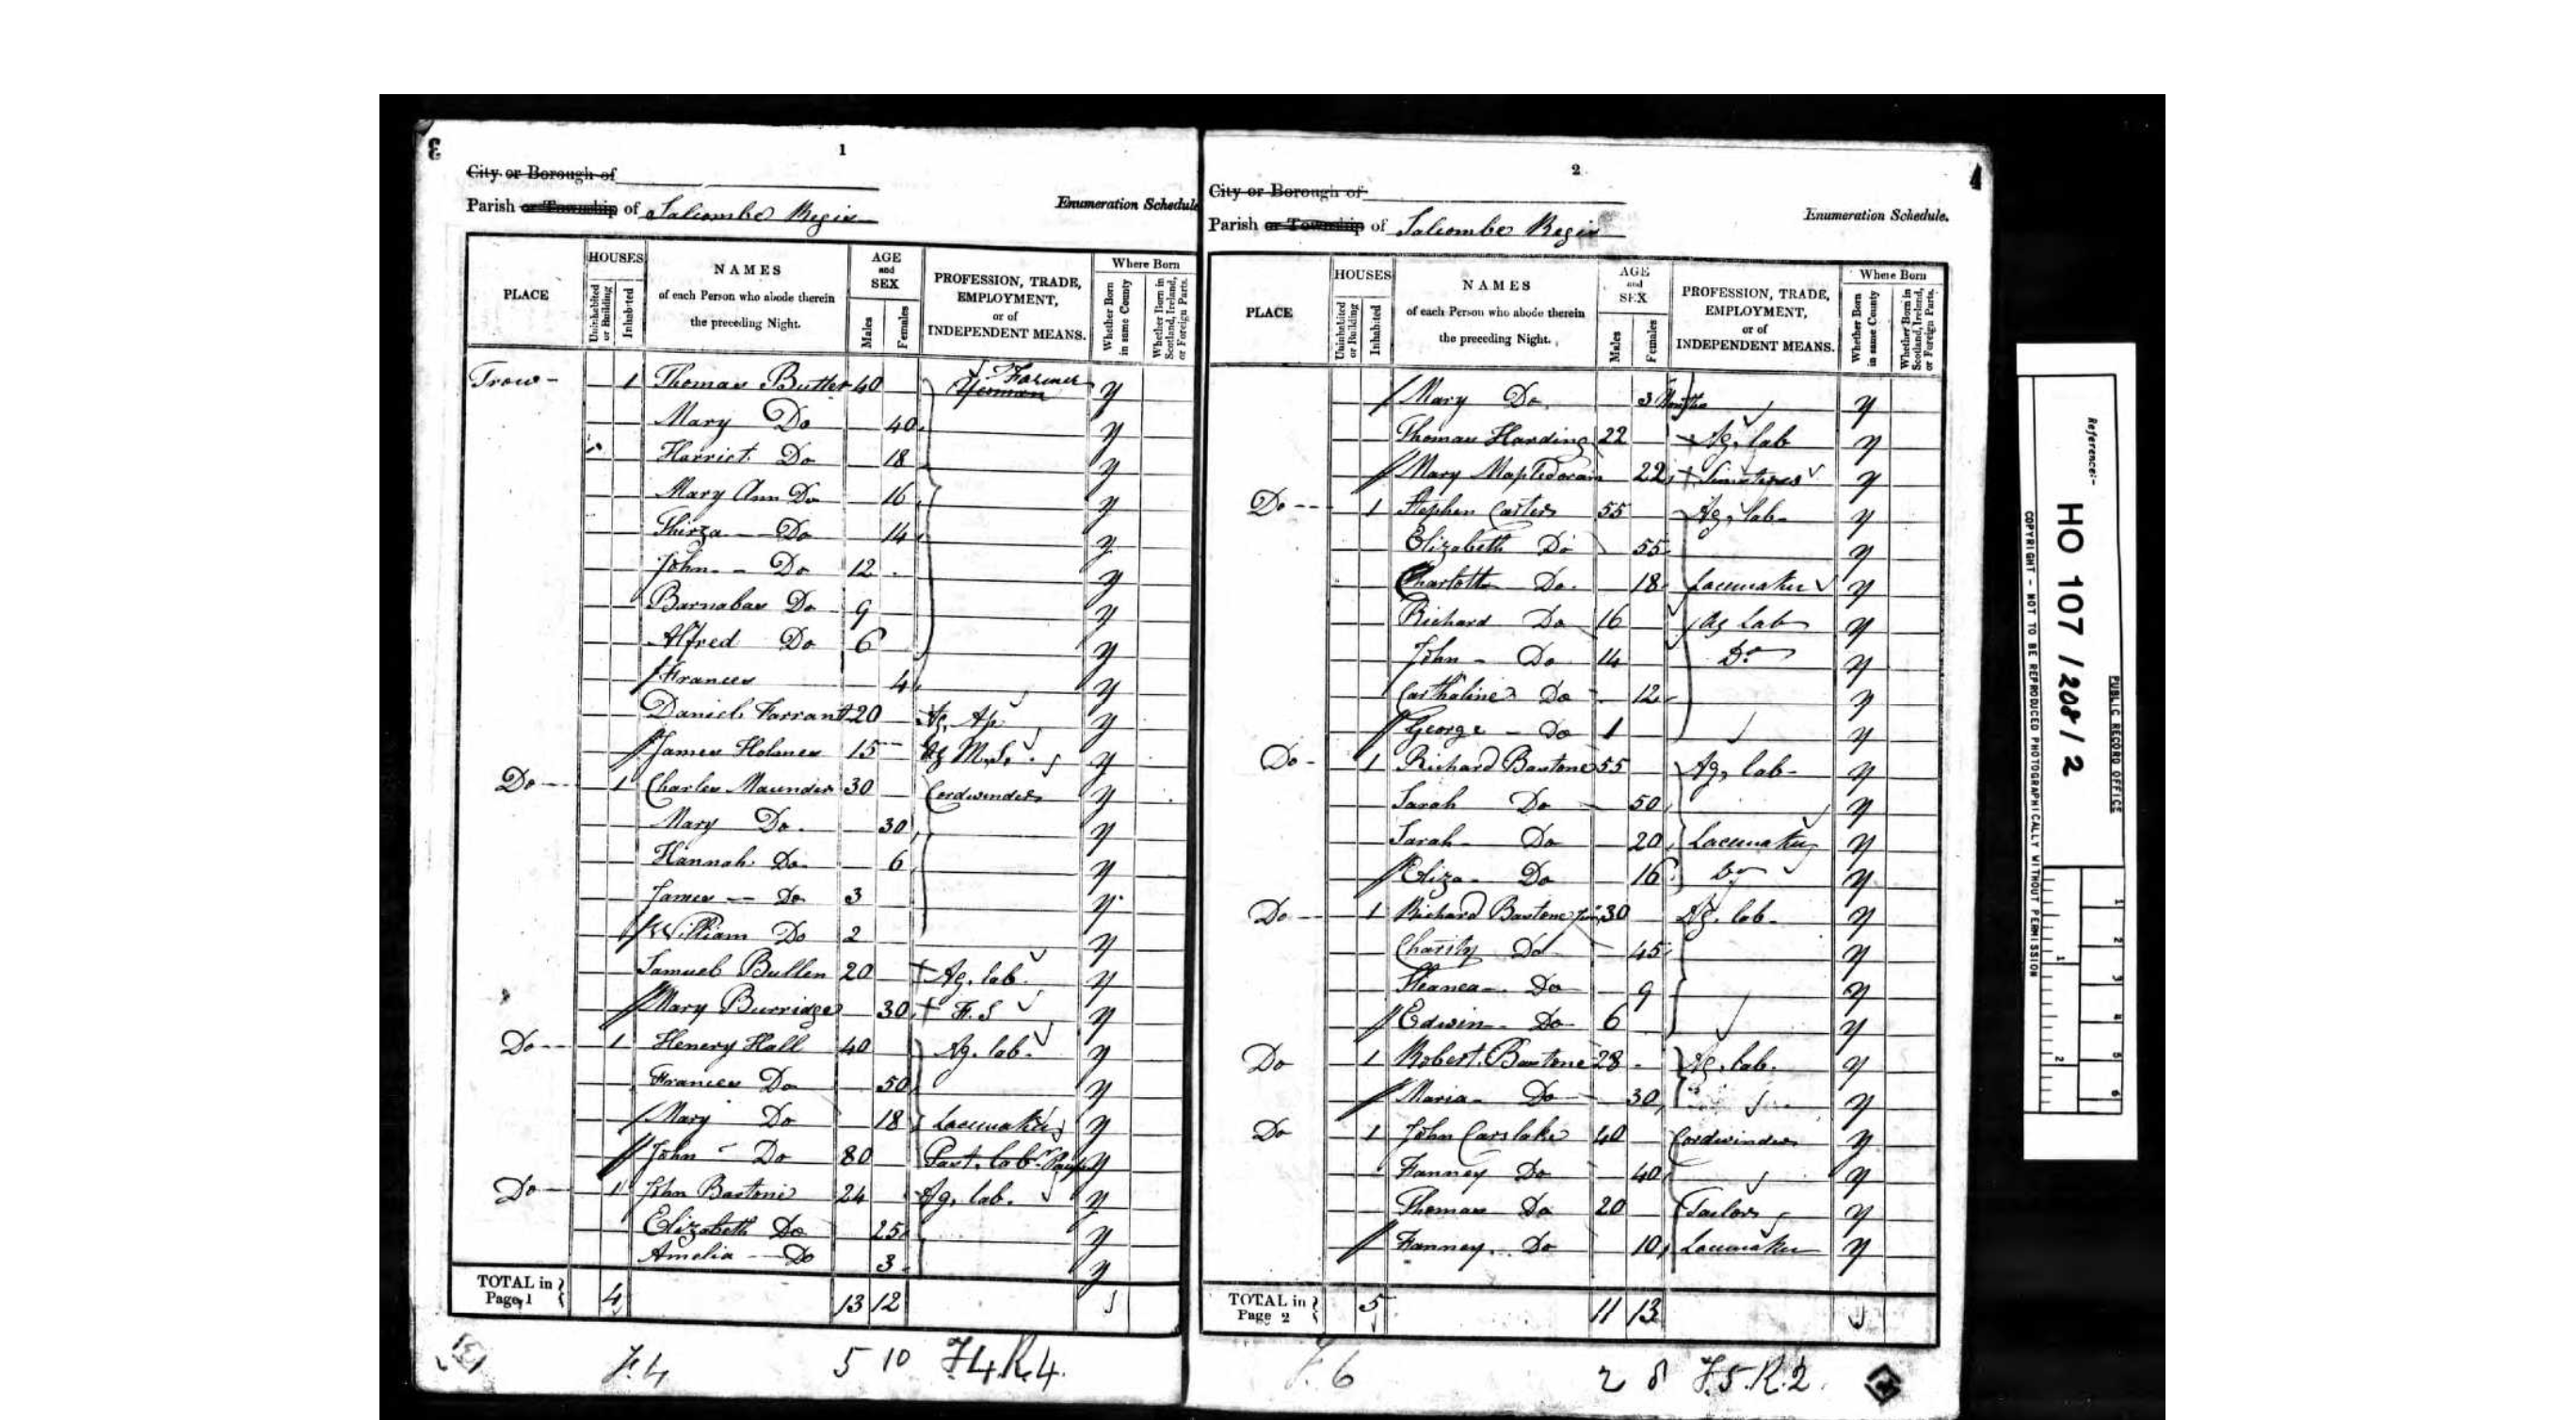 3
1
City or Borough of
Parish or Township of Salcombe Regis
Enumeration Schedule
PLACE
HOUSES
Uninhabited or Building
Inhabited
NAMES
of each Person who abode therein
the preceding Night.
AGE
and
SEX
Males
Females
PROFESSION, TRADE,
EMPLOYMENT,
or of
INDEPENDENT MEANS.
Where Born
Whether Born in same County
Whether Born in Scotland, Ireland, or Foreign Parts.
Trow - 1 Thomas Butter 40 Yeoman Farmer y
Mary Do 40 y
Harriet Do 18 y
Mary Ann Do 16 y
Thirza Do 14 y
John - Do 12 y
Barnabas Do 9 y
Alfred Do 6 y
Frances 4 y
Daniel Farrant 20 Ag. Ap. y
James Holmes 15 Ag M.S. y
Do 1 Charles Maunder 30 Cordwinder y
Mary Do 30 y
Hannah Do 6 y
James Do 3 y
William Do 2 y
Samuel Bullen 20 Ag. lab. y
Mary Burridge 30 F.S y
Do 1 Henery Hall 40 Ag. lab. y
Frances Do 50 y
Mary Do 18 Lacemaker y
John - Do 80 Past. labr y
Do 1 John Bastone 24 Ag. lab. y
Elizabeth Do 25 y
Amelia Do 3 y
TOTAL in Page 1 4 13 12
F.4 5 10 F4.R.4.
4
2
City or Borough of
Parish or Township of Salcombe Regis
Enumeration Schedule.
PLACE
HOUSES
Uninhabited or Building
Inhabited
NAMES
of each Person who abode therein
the preceding Night.
AGE
and
SEX
Males
Females
PROFESSION, TRADE,
EMPLOYMENT,
or of
INDEPENDENT MEANS.
Where Born
Whether Born in same County
Whether Born in Scotland, Ireland, or Foreign Parts.
Mary Do. 3 Months y
Thomas Harding 22 Ag. lab y
Mary 22 y
Do 1 Stephen Carter 55 Ag. lab y
Elizabeth Do 55 y
Charlotte Do. 18 Lacemaker y
Richard Do 16 Ag Lab y
John - Do 14 Do y
Carthaline Do 12 y
George - Do 1 y
Do - 1 Richard Bastone 55 Ag. lab y
Sarah Do 50 y
Sarah Do 20 Lacemaker y
Eliza Do 16 Do y
Do 1 Richard Bastone Jun 30 Ag. lab. y
Charity Do 45 y
Do 9 y
Edwin Do 6 y
Do 1 Robert Bastone 28 Ag. lab. y
Maria Do 30 y
Do 1 John Carslake 40 Cordwinder y
Fanney Do 40 y
Thomas Do 20 Tailor y
Fanney Do 10 Lacemaker y
TOTAL in Page 2 5 11 13
F.6 2 8 F.5.R.2.
Reference:-
HO 107/208/2
PUBLIC RECORD OFFICE
COPYRIGHT - NOT TO BE REPRODUCED PHOTOGRAPHICALLY WITHOUT PERMISSION
1
2
3
4
5
6
1
2